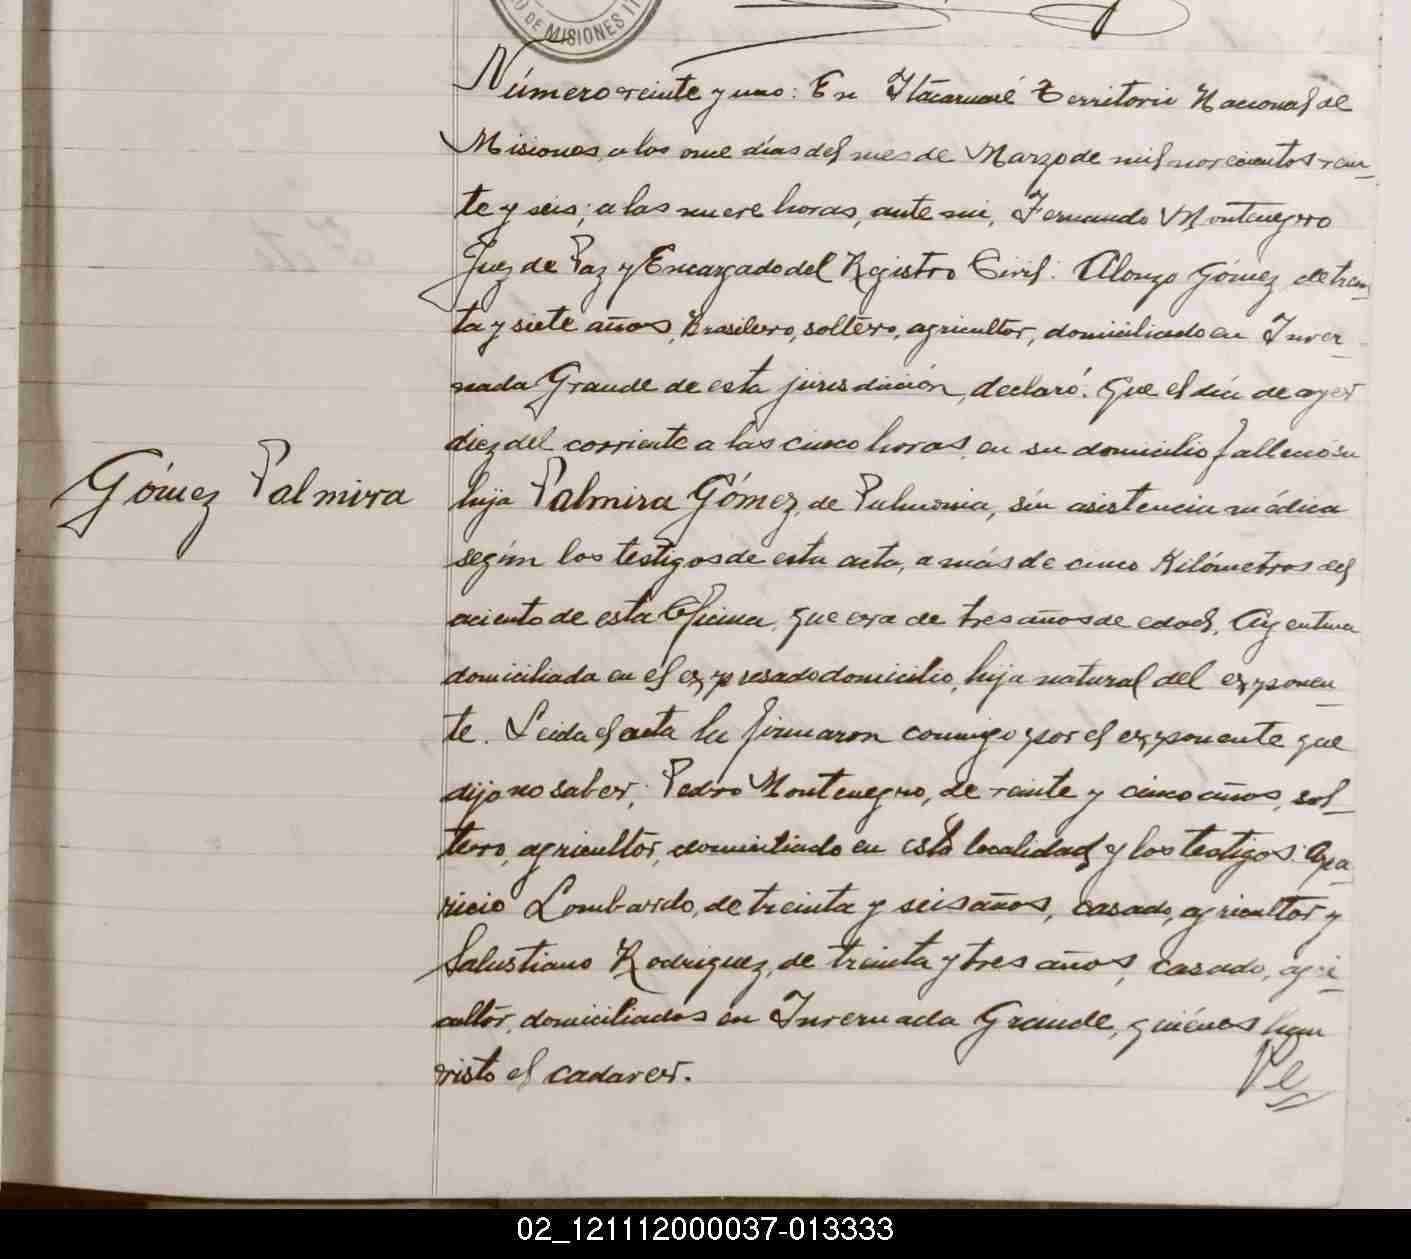 DE MISIONES
Número veinte y uno: En Itacaruaré Territorio Nacional de
Misiones, a los once días del mes de Marzo de mil novecientos vein-
te y seis; a las nueve horas, ante mi, Fernando Montenegro
Juez de Paz y Encargado del Registro Civil: Alonzo Gómez de trein-
ta y siete años, Brasilero, soltero, agricultor, domiciliado en Inver-
nada Grande de esta jurisdicción, declaró: Que el día de ayer
diez del corriente a las cinco horas, en su domicilio falleció su
Gómez Palmira
hija Palmira Gómez, de Pulmonia, sin asistencia médica
según los testigos de esta acta, a más de cinco Kilómetros del
aciento de esta Oficina, que era de tres años de edad, Argentina
domiciliada en el expresado domicilio, hija natural del exponen-
te. Leida el acta la firmaron conmigo por el exponente que
dijo no saber; Pedro Montenegro, de veinte y cinco años, sol-
tero, agricultor, domiciliado en esta localidad y los testigos: Apa-
ricio Lombardo, de treinta y seis años, casado, agricultor y
Salustiano Rodriguez, de treinta y tres años, casado, agri-
cultor, domiciliados en Invernada Grande, quiénes han
visto el cadaver.
02_121112000037-013333